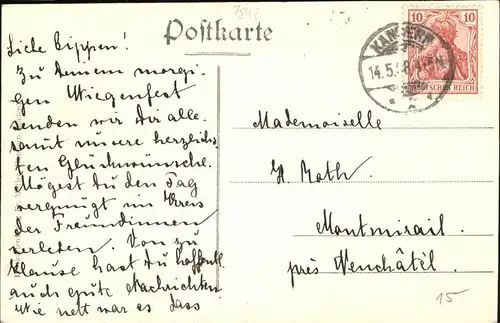 7842
Postkarte
10 10
KANDERN
14.5.
DEUTSCHES REICH
Liebe Bippen!
Zu Deinem morgi-
gen Wiegenfest
senden wir Dir alle-
samt unsere herzlichs-
ten Glückwünsche.
Mögest Du den Tag
vergnügt im Kreis
der Freundinnen
verleben. Von zu
Hause hast Du hoffentl.
auch gute Nachrichten
Wie nett war es dass
Mademoiselle
H. Roth.
Montmirail.
près Neuchâtel.
15